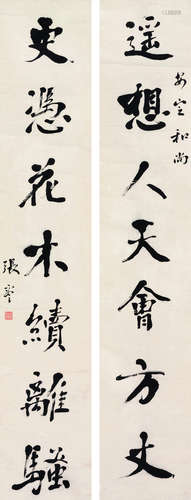 遥想人天會方丈
和尚
更憑花木續離騷
張謇